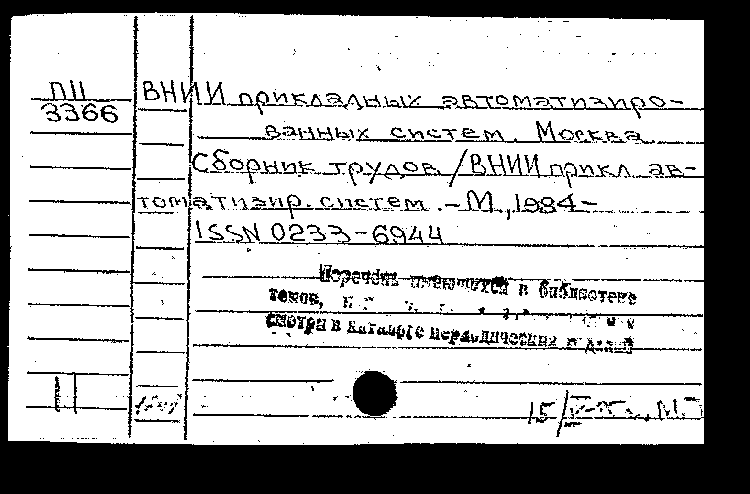 П11
3366
ВНИИ прикладных автоматизиро-
ванных систем. Москва.
Сборник трудов / ВНИИ прикл. ав-
томатизир. систем. - М., 1984 -
ISSN 0233-6944
Перечень имеющихся в библиотеке
томов,
смотри в каталоге периодических изданий
11
15/IV